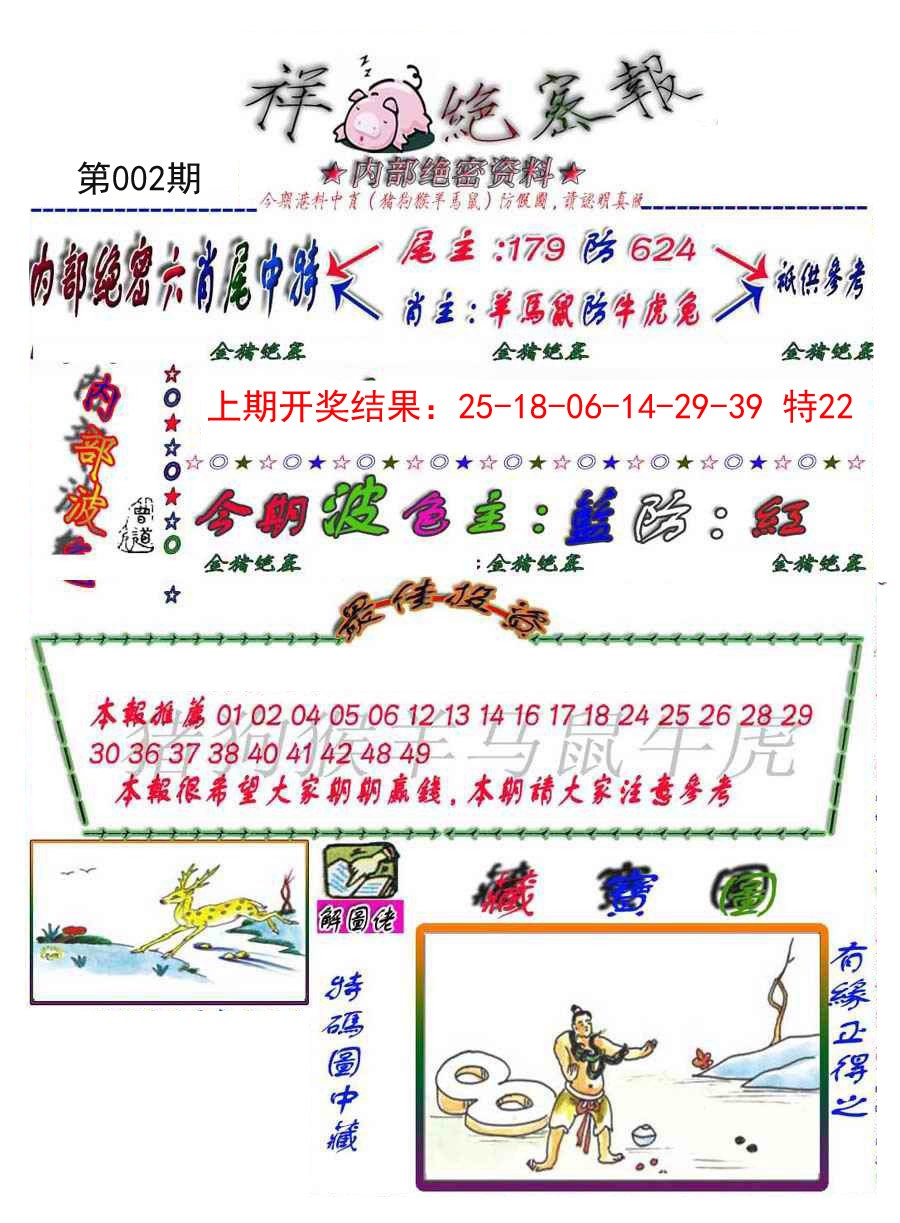 祥 絶密報
★内部绝密资料★
第002期
今期港料中肖（猪狗猴羊馬鼠）防假圖,請認明真版
内部绝密六肖尾中特
尾主:179防624
肖主:羊馬鼠防牛虎兔
祇供參考
金猪绝密 金猪绝密 金猪绝密
内部波
曾道
上期开奖结果：25-18-06-14-29-39 特22
今期波色主:藍防:紅
金猪绝密 金猪绝密 金猪绝密
最佳投
猪狗猴羊马鼠牛虎
本報推薦 01 02 04 05 06 12 13 14 16 17 18 24 25 26 28 29
30 36 37 38 40 41 42 48 49
本報很希望大家期期贏錢,本期請大家注意參考
解圖佬
藏寶圖
特碼圖中藏
有緣正得之